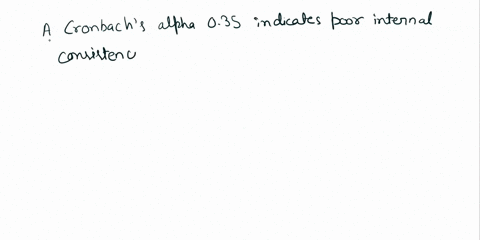 A Cronbach's alpha 0.35 indicates poor internal
consistenc